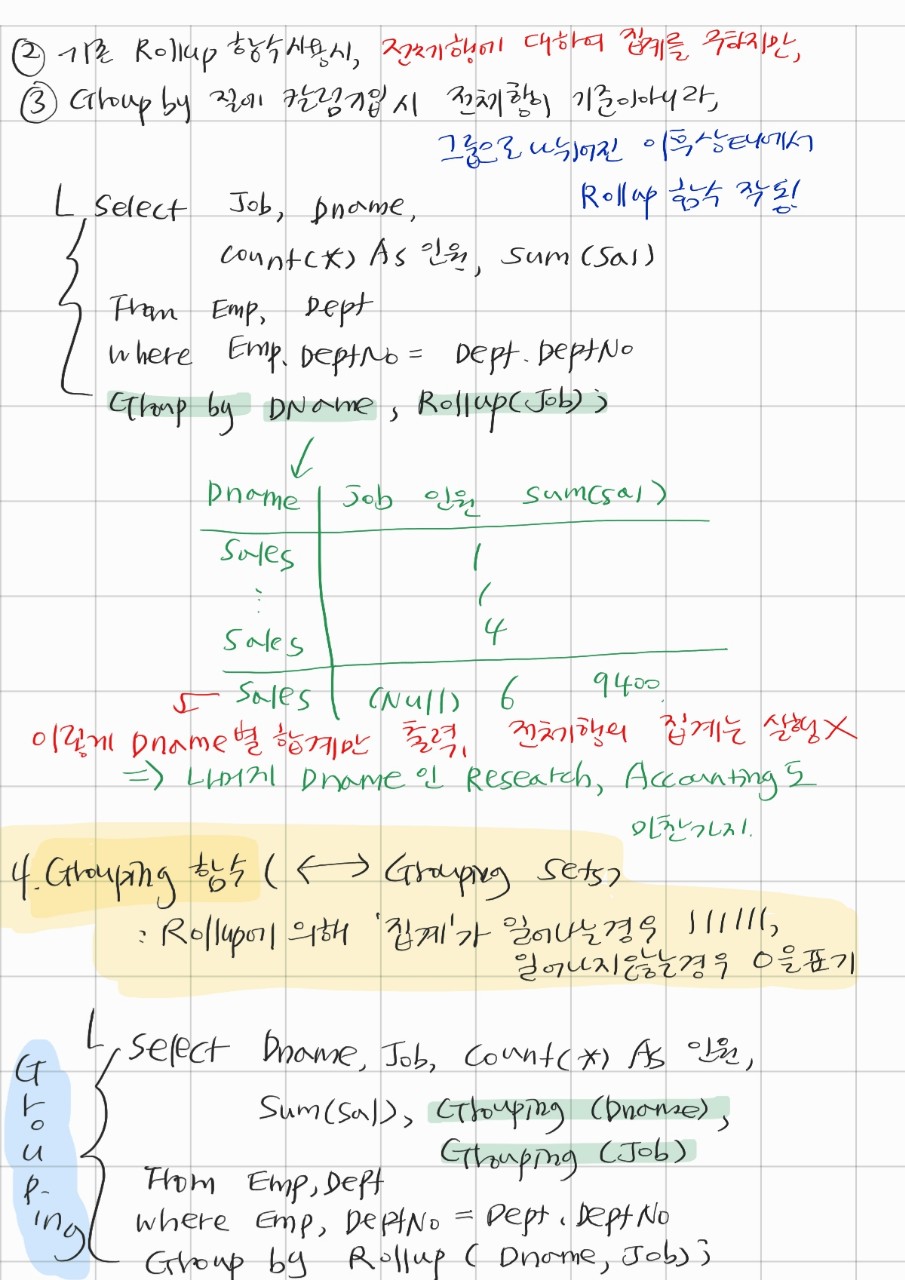 ② 기존 Rollup 함수사용시, 전체행에 대하여 집계를 구하지만,
③ Group by 절에 칼럼기입시 전체행이 기준이아니라,
그룹으로 나뉘어진 이후상태에서
Rollup 함수 작동!
Select Job, Dname,
count(*) As 인원, sum(sal)
From Emp, Dept
where Emp.DeptNo = Dept.DeptNo
Group by DName, Rollup(Job);
Dname Job 인원 sum(sal)
Sales 1
⋮ 1
Sales 4
Sales (Null) 6 9400
이렇게 Dname별 합계만 출력, 전체행의 집계는 실행X
=> 나머지 Dname인 Research, Accounting도
마찬가지.
4. Grouping 함수 (↔ Grouping Sets)
: Rollup에 의해 '집계'가 일어나는경우 111111,
일어나지않는경우 0을표기
Grouping
Select Dname, Job, Count(*) As 인원,
Sum(Sal), Grouping (Dname),
Grouping (Job)
From Emp, Dept
where Emp, DeptNo = Dept.DeptNo
Group by Rollup (Dname, Job);